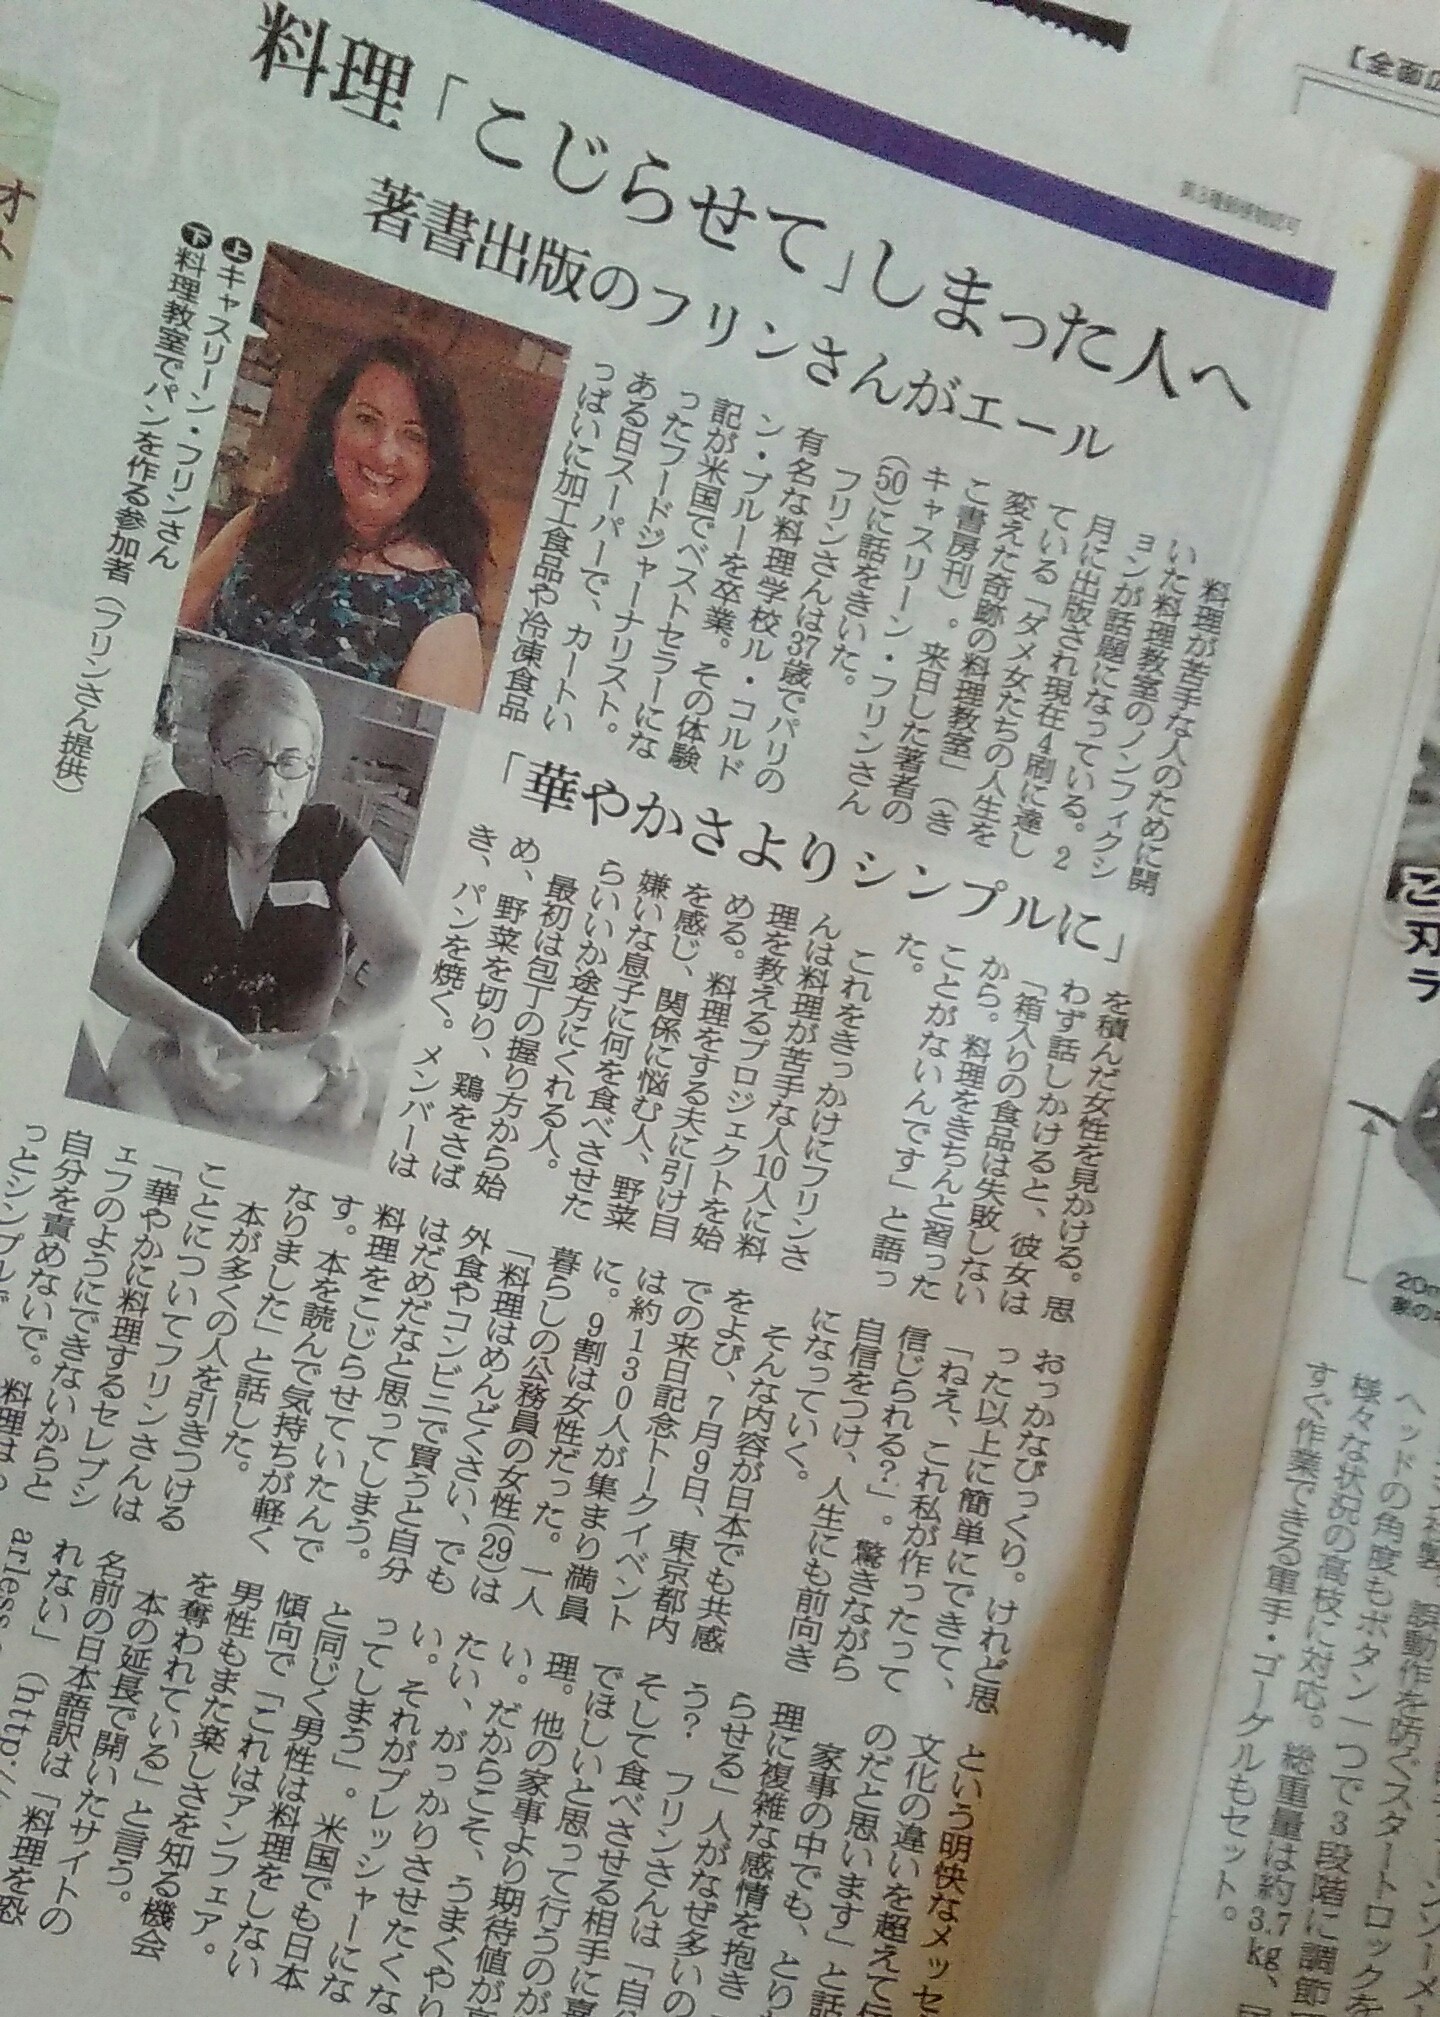 【全面広
第3種郵便物認可
料理「こじらせて」しまった人へ
著書出版のフリンさんがエール
上キャスリーン・フリンさん
下料理教室でパンを作る参加者（フリンさん提供）
料理が苦手な人のために開
いた料理教室のノンフィクシ
ョンが話題になっている。2
月に出版され現在4刷に達し
ている「ダメ女たちの人生を
変えた奇跡の料理教室」（き
こ書房刊）。来日した著者の
キャスリーン・フリンさん
(50)に話をきいた。
フリンさんは37歳でパリの
有名な料理学校ル・コルド
ン・ブルーを卒業。その体験
記が米国でベストセラーにな
ったフードジャーナリスト。
ある日スーパーで、カートい
っぱいに加工食品や冷凍食品
「華やかさよりシンプルに」
を積んだ女性を見かける。思
わず話しかけると、彼女は
「箱入りの食品は失敗しない
から。料理をきちんと習った
ことがないんです」と語っ
た。
これをきっかけにフリンさ
んは料理が苦手な人10人に料
理を教えるプロジェクトを始
める。料理をする夫に引け目
を感じ、関係に悩む人、野菜
嫌いな息子に何を食べさせた
らいいか途方にくれる人。
最初は包丁の握り方から始
め、野菜を切り、鶏をさば
き、パンを焼く。メンバーは
おっかなびっくり。けれど思
った以上に簡単にできて、
「ねえ、これ私が作ったって
信じられる？」。驚きながら
自信をつけ、人生にも前向き
になっていく。
そんな内容が日本でも共感
をよび、7月9日、東京都内
での来日記念トークイベント
は約130人が集まり満員
に。9割は女性だった。一人
暮らしの公務員の女性(29)は
「料理はめんどくさい、でも
外食やコンビニで買うと自分
はだめだなと思ってしまう。
料理をこじらせていたんで
す。本を読んで気持ちが軽く
なりました」と話した。
本が多くの人を引きつける
ことについてフリンさんは
「華やかに料理するセレブシ
ェフのようにできないからと
自分を責めないで。料理はも
っとシンプルで
という明快なメッセ
文化の違いを超えて伝
のだと思います」と話
家事の中でも、とりわ
理に複雑な感情を抱き
らせる」人がなぜ多いの
う？　フリンさんは「自分
そして食べさせる相手に喜
でほしいと思って行うのが
理。他の家事より期待値が高
い。だからこそ、うまくやり
たい、がっかりさせたくな
い。それがプレッシャーにな
ってしまう」。米国でも日本
と同じく男性は料理をしない
傾向で「これはアンフェア。
男性もまた楽しさを知る機会
を奪われている」と言う。
本の延長で開いたサイトの
名前の日本語訳は「料理を恐
れない」（http://
arless
20m
ヘッドの角度もボタン一つで3段階に調節
様々な状況の高枝に対応。総重量は約3.7kg、
すぐ作業できる軍手・ゴーグルもセット。